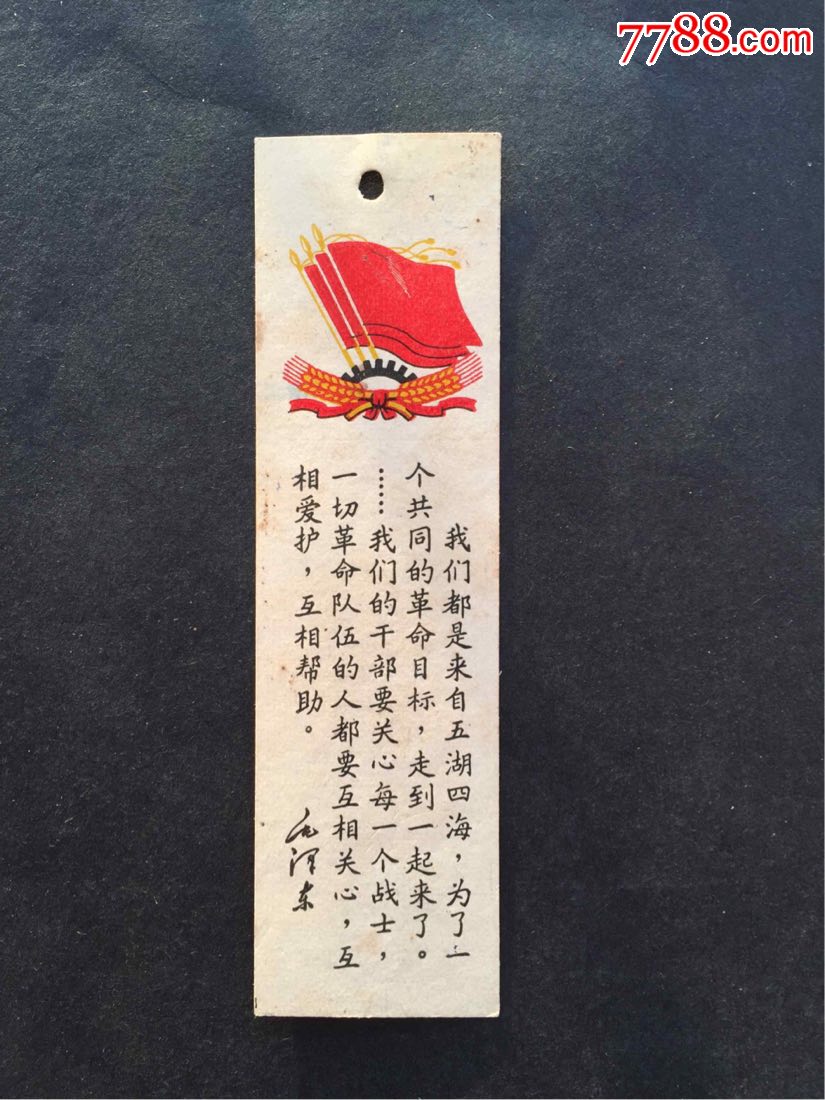 7788.com
我们都是来自五湖四海，为了一
个共同的革命目标，走到一起来了。
……我们的干部要关心每一个战士，
一切革命队伍的人都要互相关心，互
相爱护，互相帮助。
毛泽东